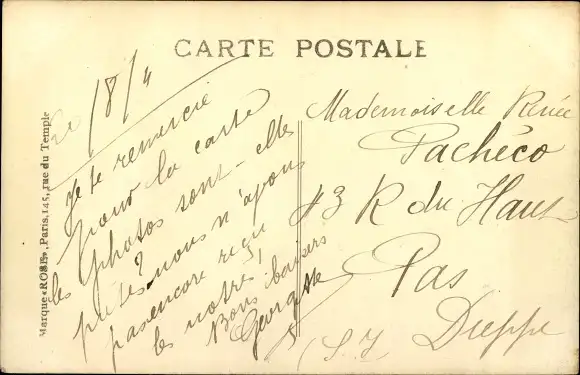 CARTE POSTALE
Marque «ROSE», Paris, 145, rue du Temple
Le 18/4
Je te remercie
pour la carte
les photos sont-elles
prêtes? nous n'avons
pas encore reçu
les notres!
Bons baisers
Georgette
Mademoiselle Renée
Pachéco
43 R du Haut
Pas
Dieppe
(S. I